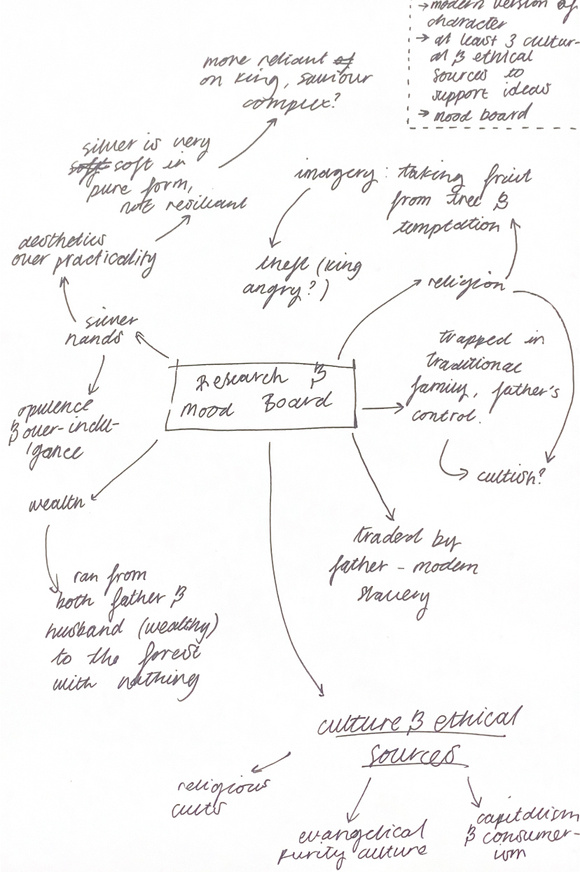 → modern version of
character
→ at least 3 cultur-
al & ethical
sources to
support ideas
→ mood board
more reliant of
on king, saviour
complex?
silver is very
soft soft in
pure form,
not resilient
aesthetics
over practicality
silver
hands
opulence
& over-indul-
gance
imagery: taking fruit
from tree &
temptation
theft (king
angry?)
religion
Research &
Mood Board
trapped in
traditional
family, father's
control.
cultish?
wealth
ran from
both father &
husband (wealthy)
to the forest
with nothing
traded by
father - modern
slavery
culture & ethical
sources
religious
cults
evangelical
purity culture
capitalism
& consumer-
ism